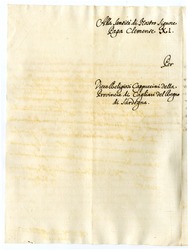 Alla Santità di Nostro Signore
Papa Clemente XI.
Per
Religiosi Cappuccini della
Provincia di Cagliari del Regno
di Sardegna.